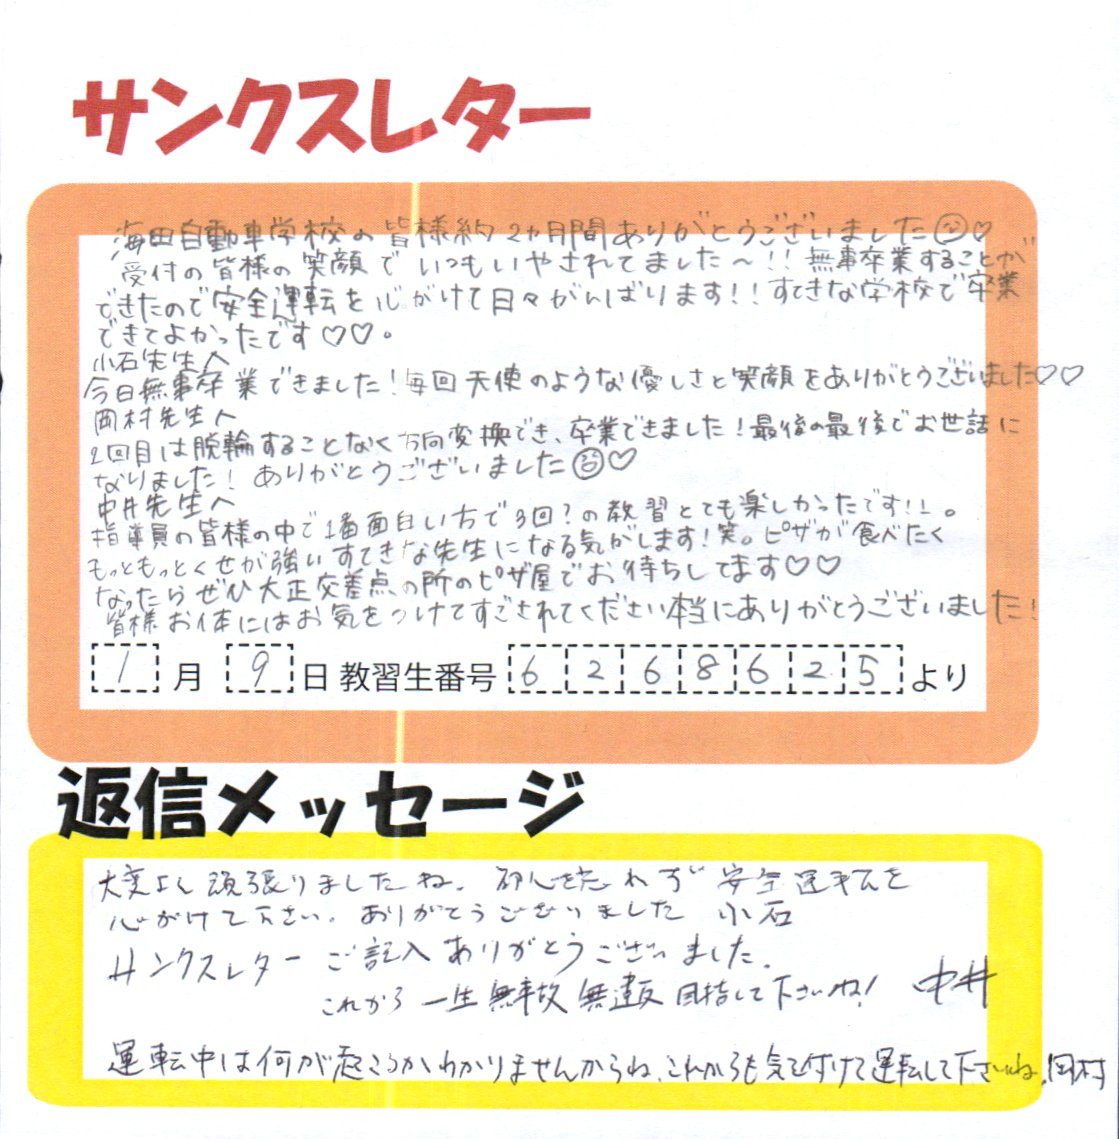 サンクスレター
海田自動車学校の皆様約2ヵ月間ありがとうございました☺♡
受付の皆様の笑顔でいつもいやされてました〜!!無事卒業することが
できたので安全運転を心がけて日々がんばります!!すてきな学校で卒業
できてよかったです♡♡。
小石先生へ
今日無事卒業できました!毎回天使のような優しさと笑顔をありがとうございました♡♡
岡村先生へ
2回目は脱輪することなく方向変換でき、卒業できました!最後の最後でお世話に
なりました!ありがとうございました☺♡
中井先生へ
指導員の皆様の中で1番面白い方で3回?の教習とても楽しかったです!!。
もっともっとくせが強いすてきな先生になる気がします!笑。ピザが食べたく
なったらぜひ大正交差点の所のピザ屋でお待ちしてます♡♡
皆様お体にはお気をつけてすごされてください本当にありがとうございました!
1月9日教習生番号6268625より
返信メッセージ
大変よく頑張りましたね。初心を忘れず安全運転を
心がけて下さい。ありがとうございました 小石
サンクスレター ご記入ありがとうございました。
これから一生無事故無違反目指して下さいね! 中井
運転中は何が起こるかわかりませんからね、これからも気を付けて運転して下さいね。岡村